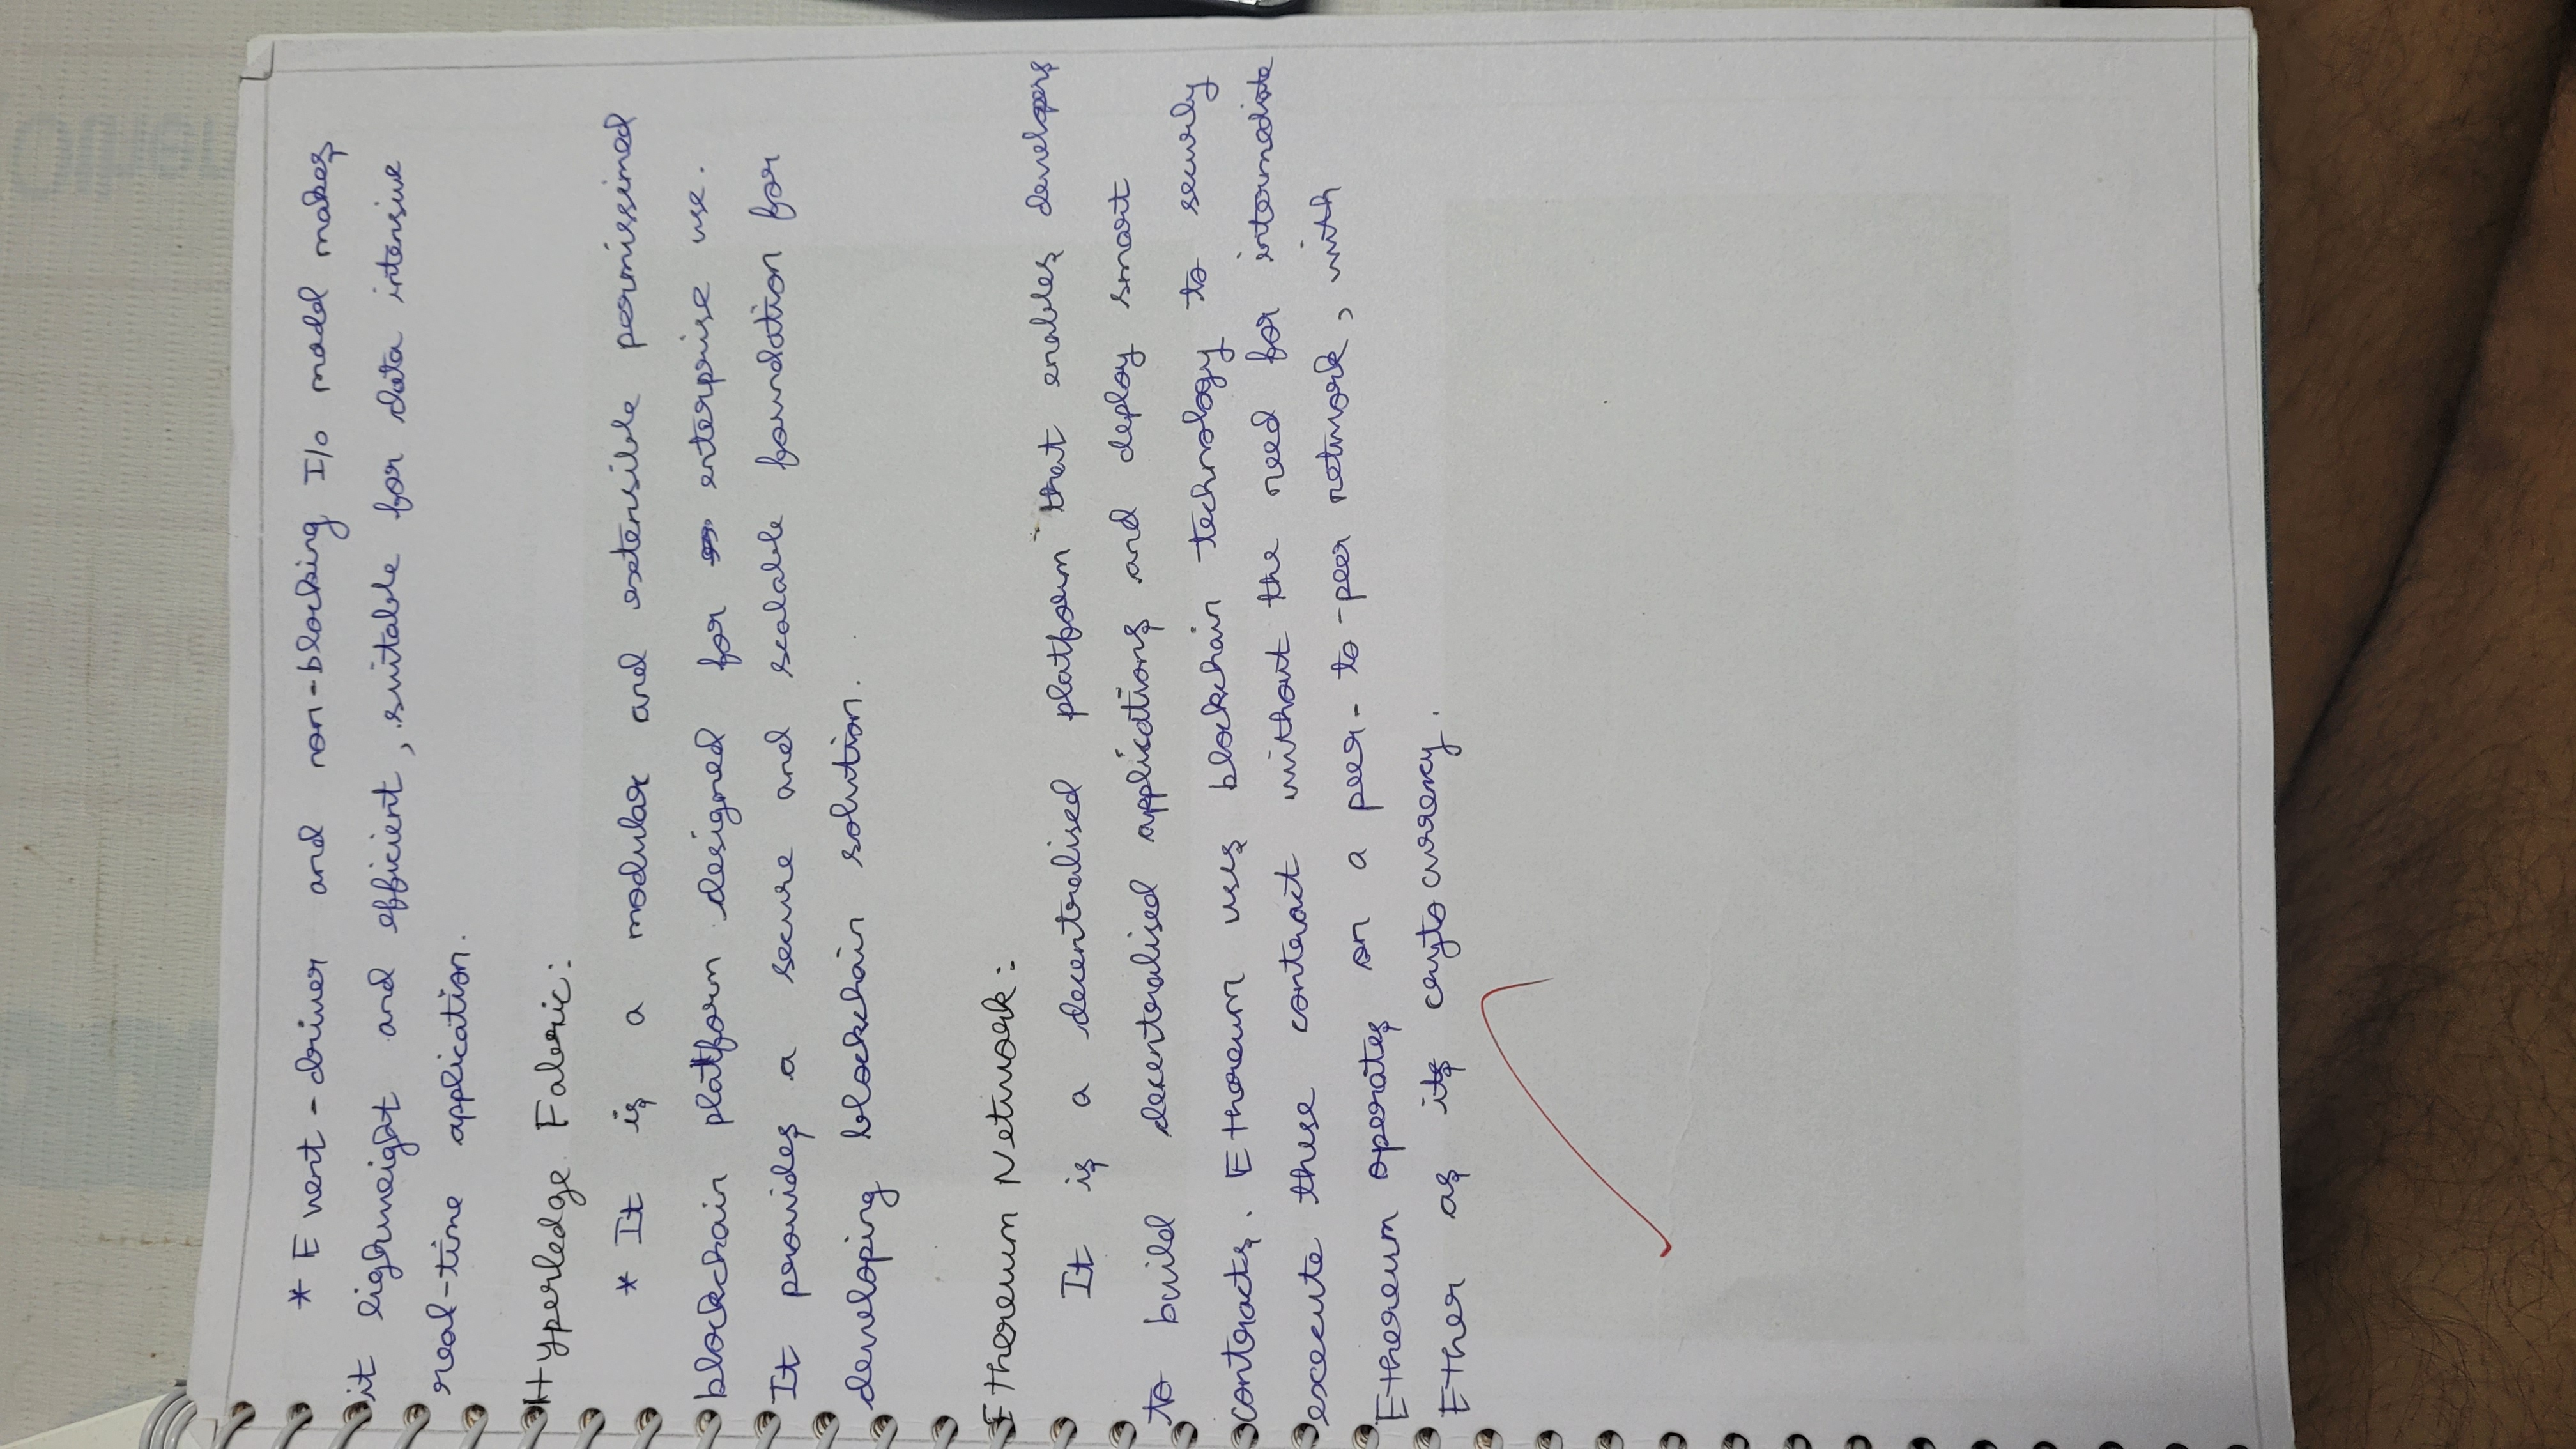 * Event-driven and non-blocking I/o model makes
it lighweight and efficient, suitable for data intensive
real-time application.
Hyperledge Fabric:
* It is a modular and extensible permissined
blockchain platform designed for enterprise use.
It provides a secure and scalable foundation for
developing blockchain solution.
Ethereum Network:
It is a decentralised platform that enables developers
to build decentralised applications and deploy smart
contracts. Ethereum uses blockchain technology to securly
execute these contract without the need for intermediate
Ethereum operates on a peer-to-peer network, with
Ether as its cryto currency.